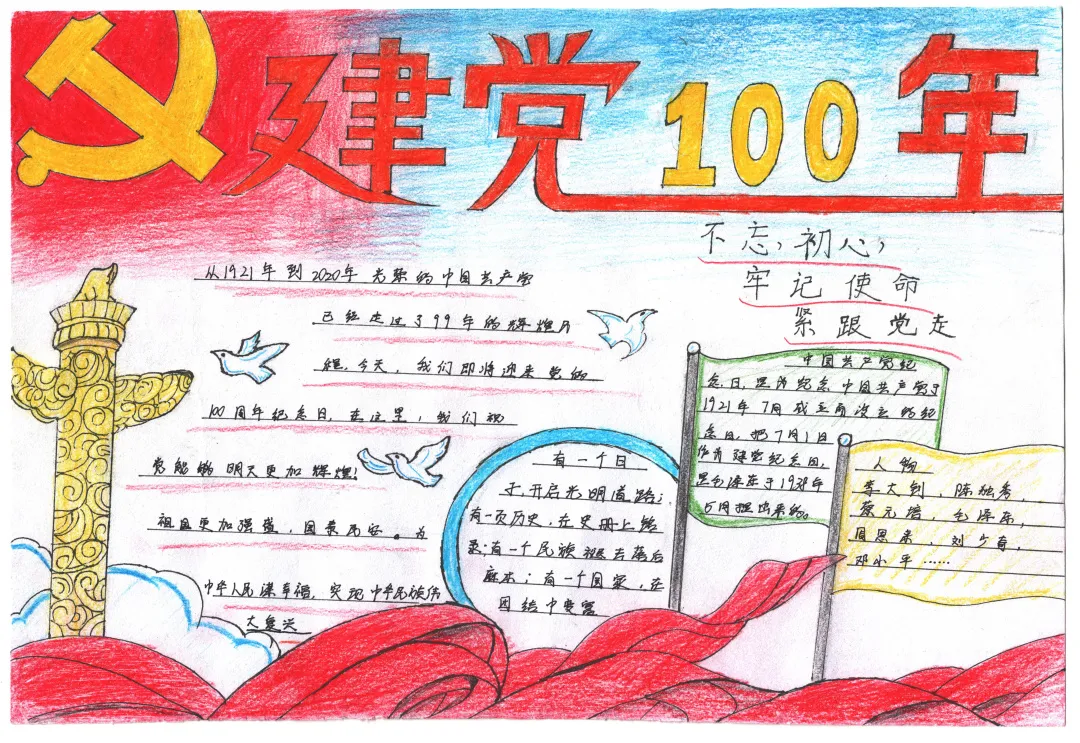 建党100年
不忘,初心,
牢记使命
紧跟党走
从1921年到2020年光荣的中国共产党
已经走过了99年的辉煌历
程,今天,我们即将迎来党的
100周年纪念日,在这里,我们祝
党能够明天更加辉煌!
祖国更加强盛,国泰民安。为
中华人民谋幸福,实现中华民族伟
大复兴
有一个日
子,开启光明道路;
有一页历史,在史册上镌
录;有一个民族褪去落后
麻木;有一个国家,在
团结中
中国共产党纪
念日,是为纪念中国共产党于
1921年7月成立而设立的纪
念日,把7月1日
作为建党纪念日,
是毛泽东于1938年
5月提出来的。
人物
李大钊,陈独秀,
蔡元培,毛泽东,
周恩来,刘少奇,
邓小平……